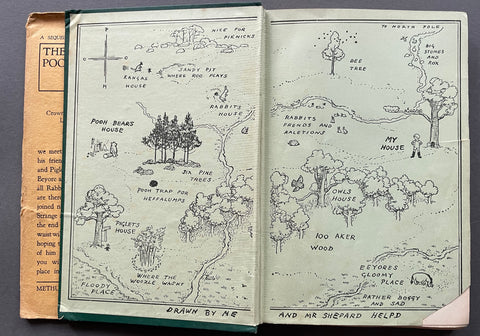 A SEQUE
THE
POO
Crown
we meet
his friend
and Pigle
Eeyore a
all Rabb
are there
Strange
the end
waist wi
hoping
of him
you wi
place in
METHU
NICE FOR
PIKNICKS
KANGAS
HOUSE
SANDY PIT
WHERE ROO PLAYS
RABBITS
HOUSE
POOH BEARS
HOUSE
SIX PINE
TREES
POOH TRAP FOR
HEFFALUMPS
PIGLETS
HOUSE
WHERE THE
WOOZLE WASNT
FLOODY
PLACE
DRAWN BY ME
TO NORTH POLE
BIG
STONES
AND
ROX
BEE
TREE
RABBITS
FRENDS AND
RALETIONS
MY
HOUSE
OWLS
HOUSE
100 AKER
WOOD
EEYORES
GLOOMY
PLACE
RATHER BOGGY
AND SAD
AND MR SHEPARD HELPD